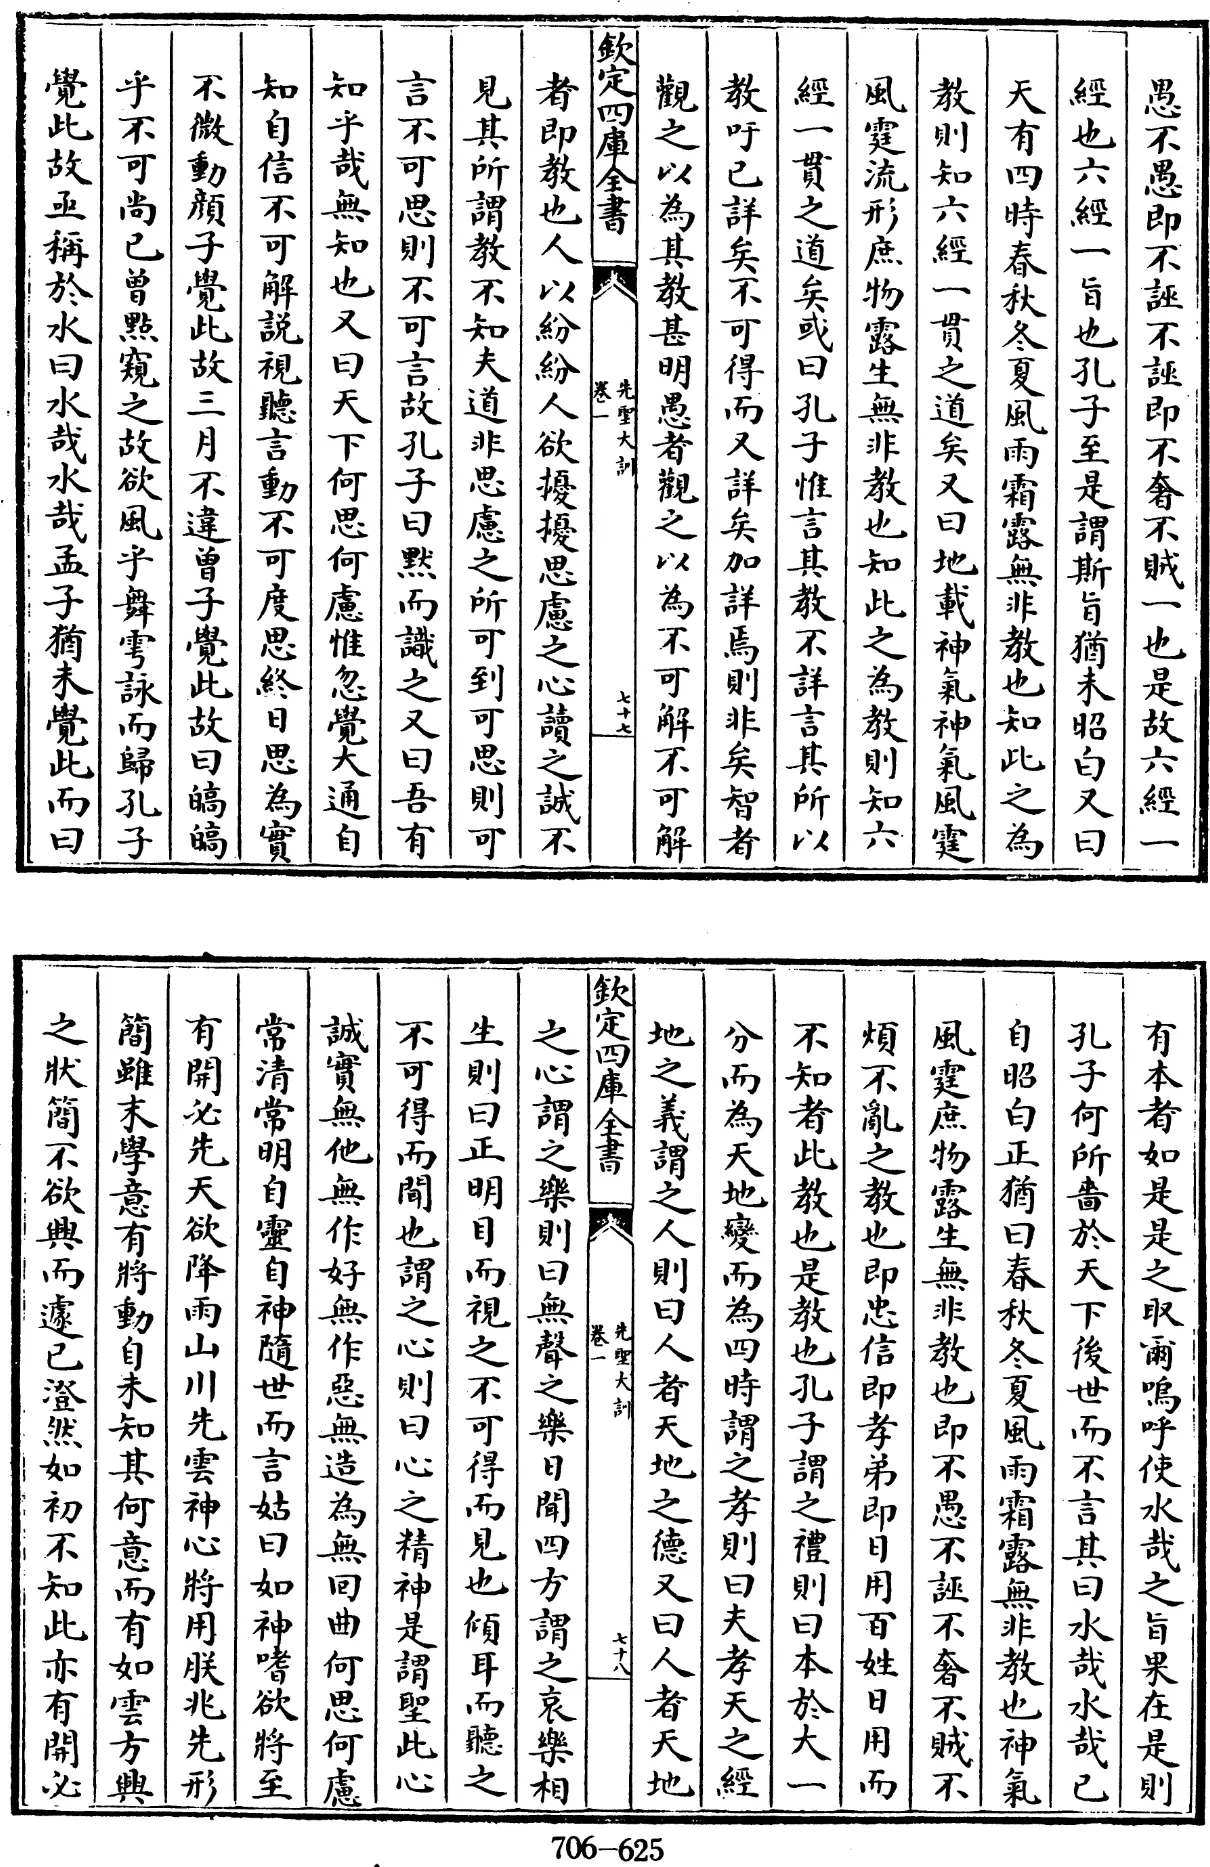 愚不愚即不誣不誣即不奢不賊一也是故六經一
經也六經一旨也孔子至是謂斯旨猶未昭白又曰
天有四時春秋冬夏風雨霜露無非教也知此之為
教則知六經一貫之道矣又曰地載神氣神氣風霆
風霆流形庶物露生無非教也知此之為教則知六
經一貫之道矣或曰孔子惟言其教不詳言其所以
教吁已詳矣不可得而又詳矣加詳焉則非矣智者
觀之以為其教甚明愚者觀之以為不可解不可解
欽定四庫全書
先聖大訓
卷一
七十七
者即教也人以紛紛人欲擾擾思慮之心讀之誠不
見其所謂教不知夫道非思慮之所可到可思則可
言不可思則不可言故孔子曰默而識之又曰吾有
知乎哉無知也又曰天下何思何慮惟忽覺大通自
知自信不可解說視聽言動不可度思終日思為實
不微動顔子覺此故三月不違曾子覺此故曰皜皜
乎不可尚已曾點窺之故欲風乎舞雩詠而歸孔子
覺此故亟稱於水曰水哉水哉孟子猶未覺此而曰
有本者如是是之取爾嗚呼使水哉之旨果在是則
孔子何所嗇於天下後世而不言其曰水哉水哉已
自昭白正猶曰春秋冬夏風雨霜露無非教也神氣
風霆庶物露生無非教也即不愚不誣不奢不賊不
煩不亂之教也即忠信即孝弟即日用百姓日用而
不知者此教也是教也孔子謂之禮則曰本於大一
分而為天地變而為四時謂之孝則曰夫孝天之經
地之義謂之人則曰人者天地之德又曰人者天地
欽定四庫全書
先聖大訓
卷一
七十八
之心謂之樂則曰無聲之樂日聞四方謂之哀樂相
生則曰正明目而視之不可得而見也傾耳而聽之
不可得而聞也謂之心則曰心之精神是謂聖此心
誠實無他無作好無作惡無造為無回曲何思何慮
常清常明自靈自神隨世而言姑曰如神嗜欲將至
有開必先天欲降雨山川先雲神心將用朕兆先形
簡雖末學意有將動自未知其何意而有如雲方興
之狀簡不欲興而遽已澄然如初不知此亦有開必
706-625